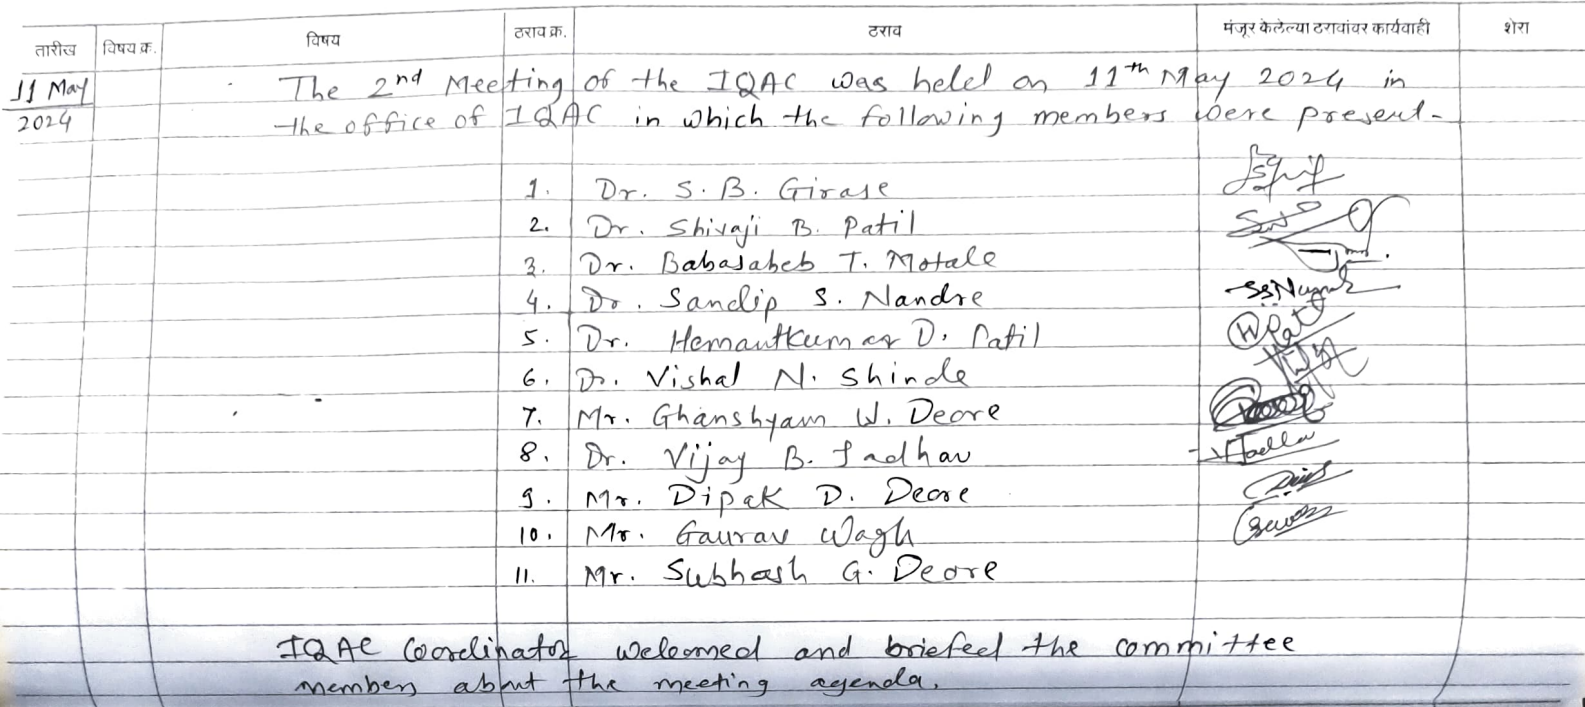 तारीख विषय क्र. विषय ठराव क्र. ठराव मंजूर केलेल्या ठरावांवर कार्यवाही शेरा
11 May The 2nd Meeting of the IQAC was held on 11th May 2024 in
2024 the office of IQAC in which the following members were present-
1. Dr. S. B. Girase
2. Dr. Shivaji B. Patil
3. Dr. Babasaheb T. Motale
4. Dr. Sandip S. Nandre
5. Dr. Hemantkumar D. Patil
6. Dr. Vishal N. Shinde
7. Mr. Ghanshyam W. Deore
8. Dr. Vijay B. Jadhav
9. Mr. Dipak D. Deore
10. Mr. Gaurav Wagh
11. Mr. Subhash G. Deore
IQAC Coordinator welcomed and briefed the committee
members about the meeting agenda.